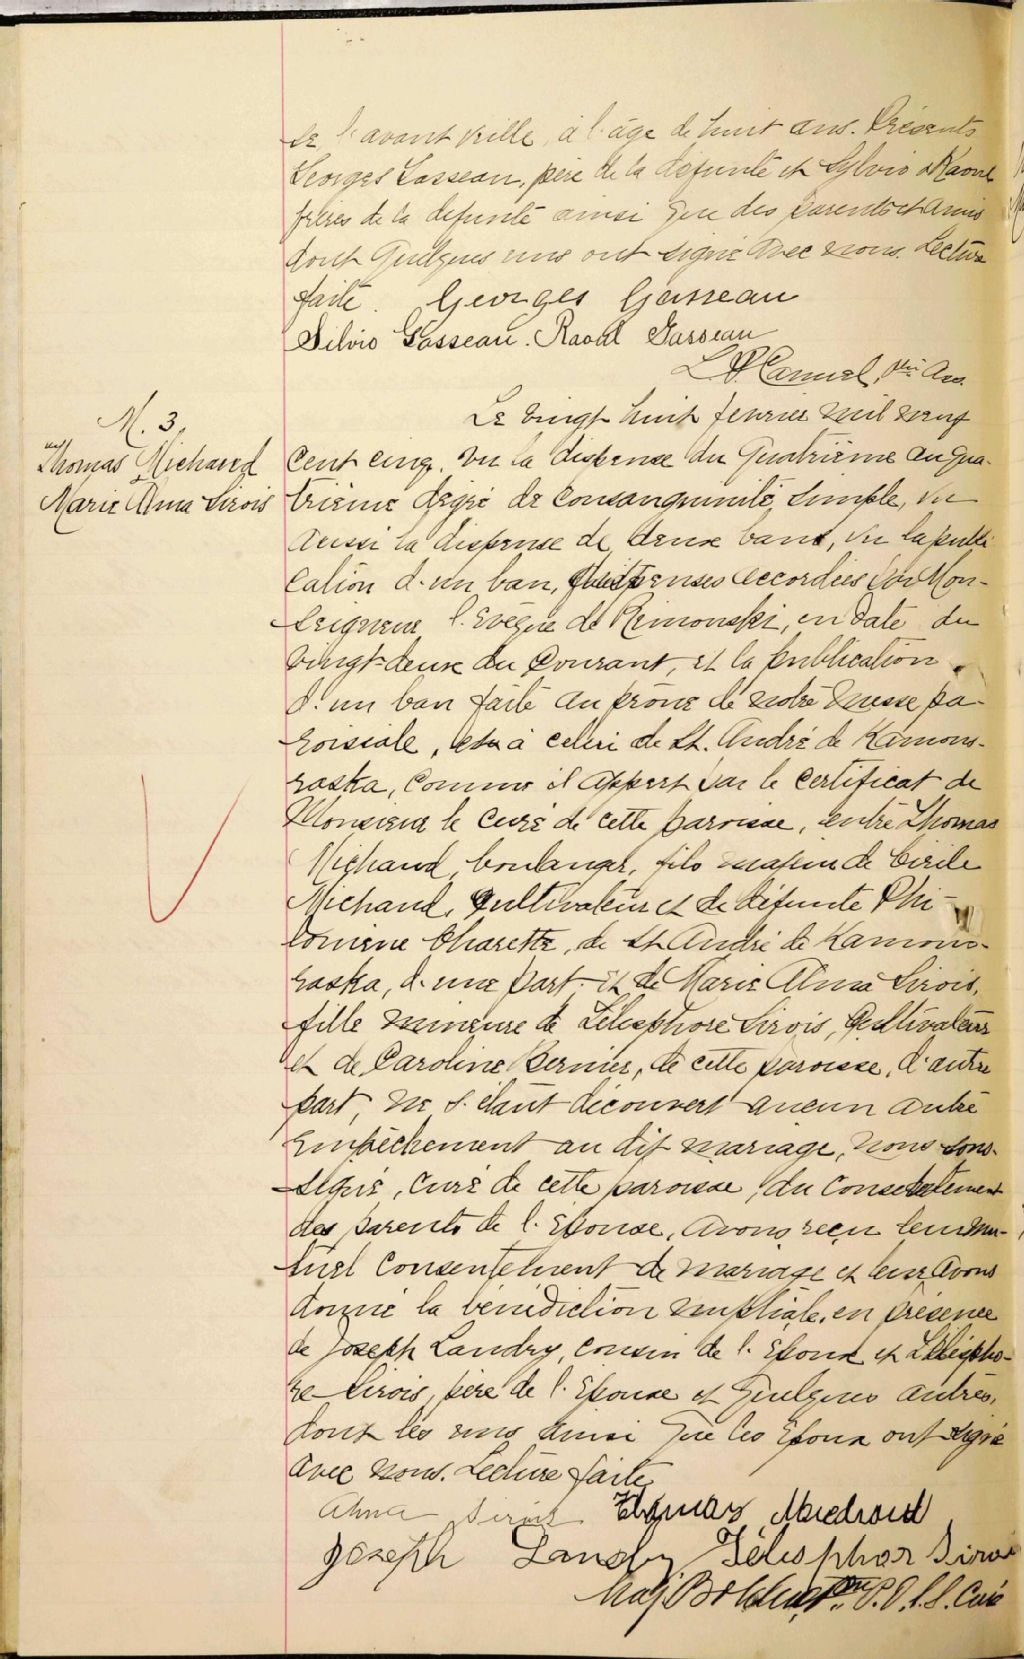 de l'avant veille, à l'âge de huit ans. Présents
Georges Gasseau, père de la défunte et Sylvio & Raoul
frères de la défunte ainsi que des parents et amis
dont quelques uns ont signé avec nous. Lecture
faite. Georges Gasseau
Silvio Gasseau. Raoul Gasseau
Ptre
Le vingt huit février mil neuf
M. 3.
Thomas Michaud
Marie Alma Sirois
cent cinq, vu la dispense du quatrième au qua-
trième degré de consanguinité simple, vu
aussi la dispense de deux bans, vu la publi
cation d'un ban, dispenses accordées par Mon-
seigneur l'Evêque de Rimouski, en date du
vingt-deux du courant, et la publication
d'un ban faite au prône de notre messe pa-
roissiale, et à celui de St. André de Kamou-
raska, comme il appert par le certificat de
Monsieur le curé de cette paroisse, entre Thomas
Michaud, boulanger, fils majeur de Cirile
Michaud, cultivateur et de défunte Phi-
lomène Charette, de St André de Kamou-
raska, d'une part. Et de Marie Alma Sirois,
fille mineure de Télesphore Sirois, cultivateur
et de Caroline Bernier, de cette paroisse, d'autre
part, ne s'étant découvert aucun autre
empêchement au dit mariage, nous sous-
signé, curé de cette paroisse, du consentement
des parents de l'Epouse, avons reçu leur mu-
tuel consentement de mariage et leur avons
donné la bénédiction nuptiale, en présence
de Joseph Landry, cousin de l'Epoux et Télespho-
re Sirois, père de l'Epouse et quelques autres,
dont les uns ainsi que les Epoux ont signé
avec nous. Lecture faite
Alma Sirois Thomas Michaud
Joseph Landry Télesphor Sirois
Ptre Curé